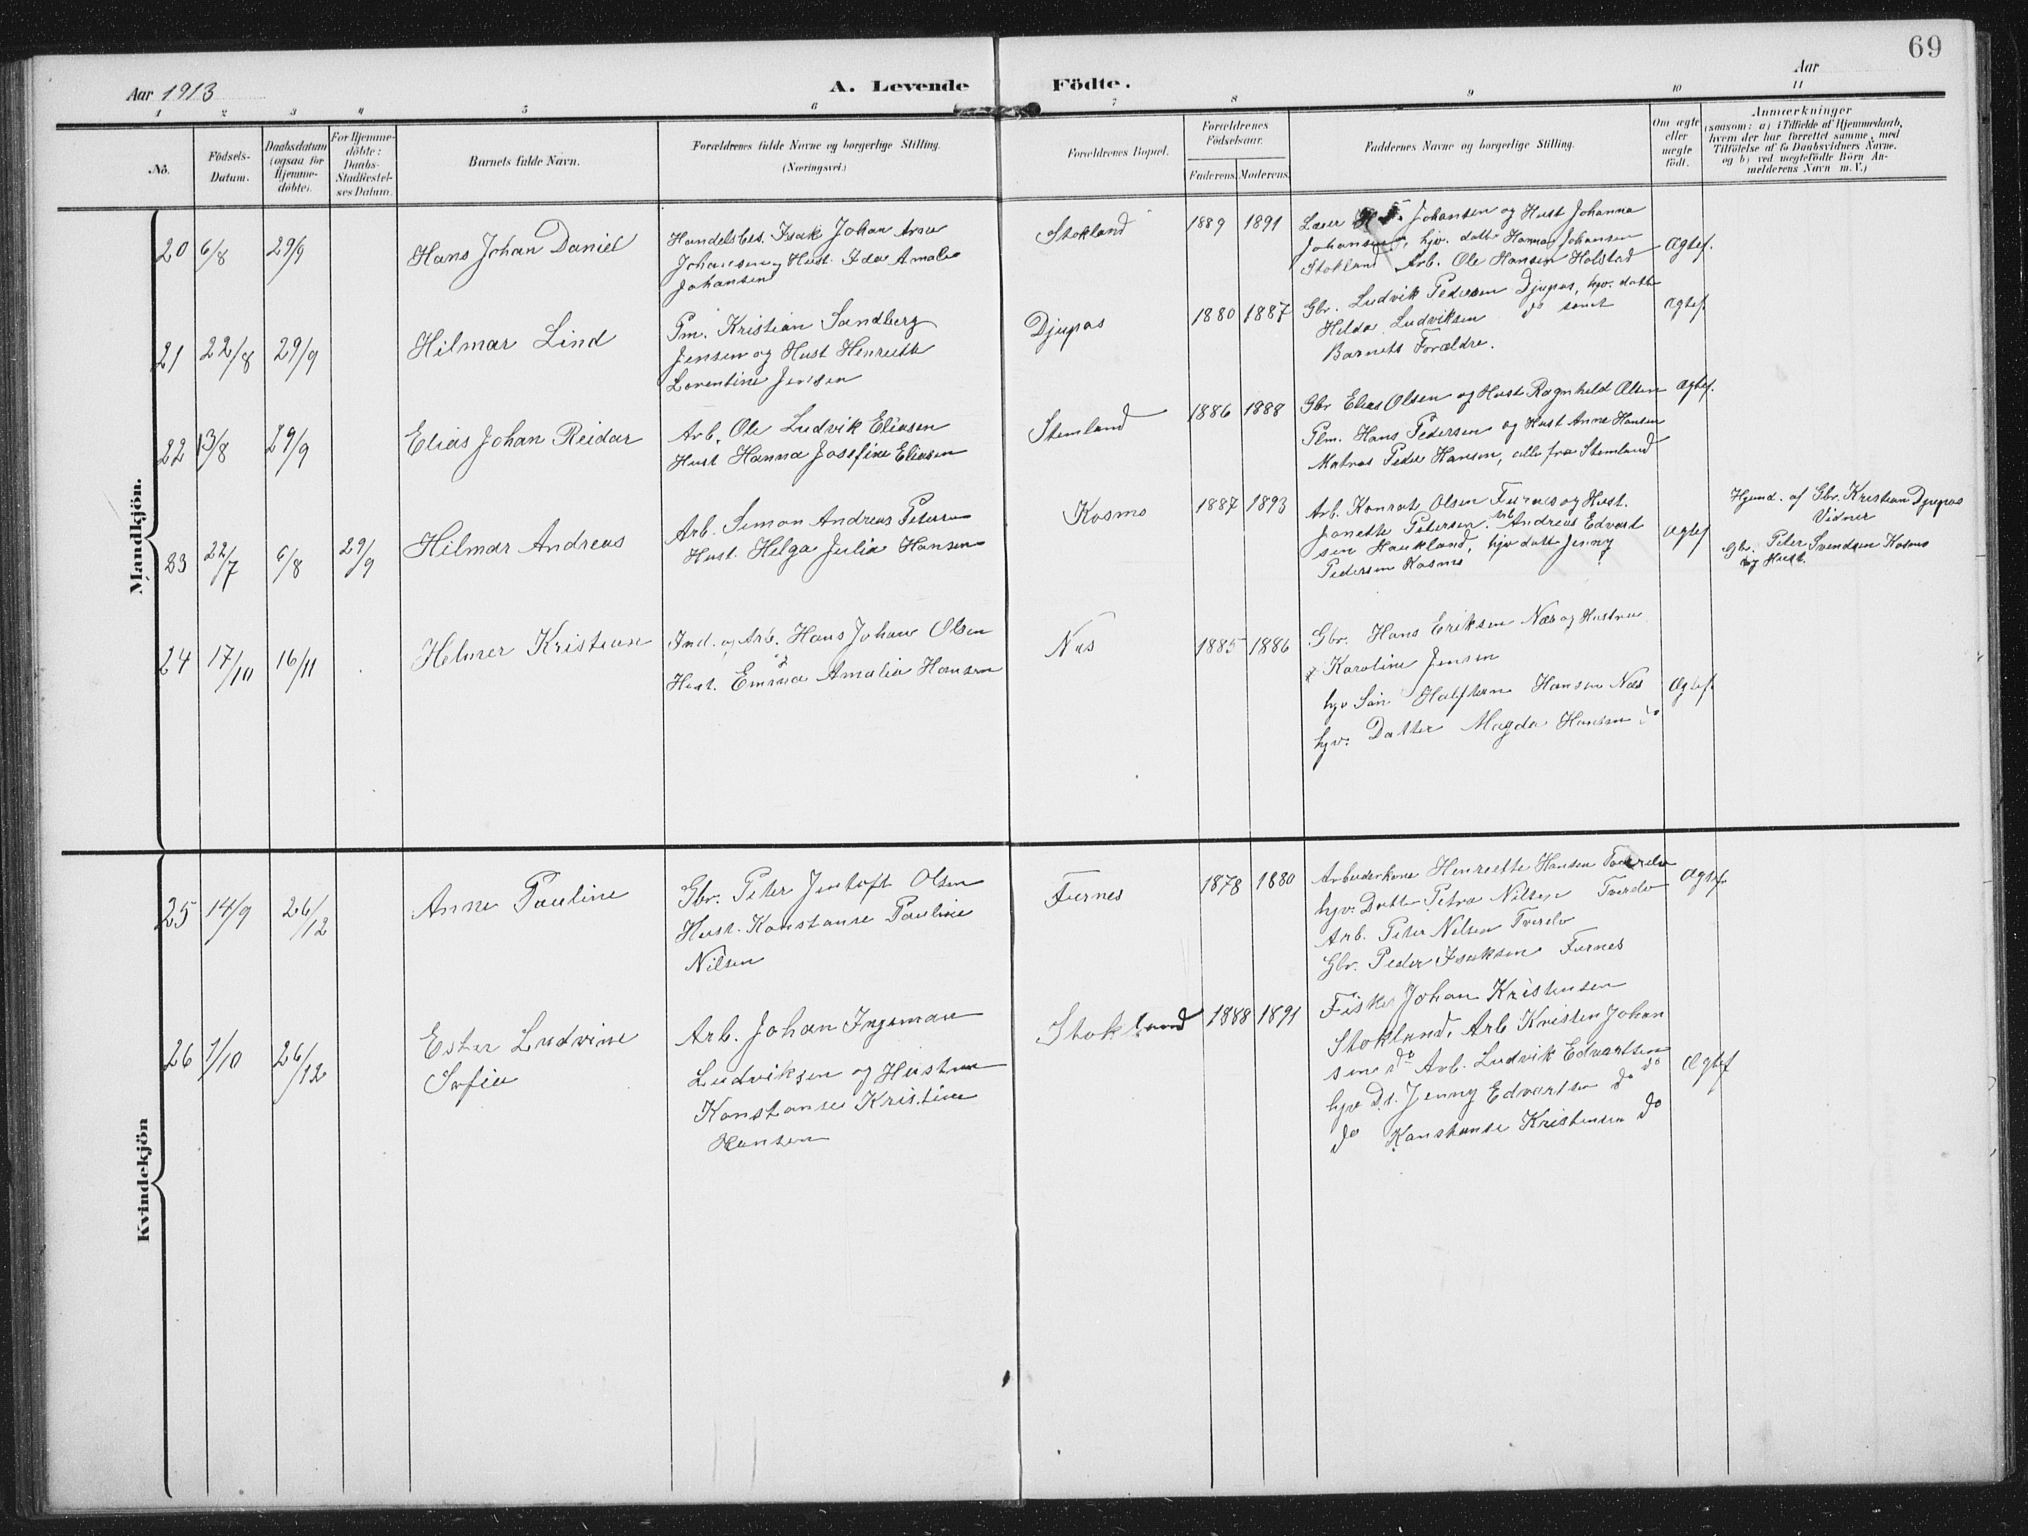 69
Aar 1913
A. Levende Födte.
Aar
1 2 3 4 5 6 7 8 9 10 11
No.
Födsels-
Datum.
Daabsdatum
(ogsaa for
Hjemme-
döbte).
For Hjemme-
döbte:
Daabs-
Stadfæstel-
ses Datum.
Barnets fulde Navn.
Forældrenes fulde Navne og borgerlige Stilling.
(Næringsvei.)
Forældrenes Bopæl.
Forældrenes
Födselsaar.
Faderens. Moderens.
Faddernes Navne og borgerlige Stilling.
Om ægte
eller
uægte
födt.
Anmærkninger
(saasom: a) i Tilfælde af Hjemmedaab,
hvem der har forrettet samme, med
Tilföielse af to Daabsvidners Navne.
og b) ved uægtefödte Börn An-
melderens Navn m. V.)
Mandkjön.
20 6/8 29/9
Hans Johan Daniel
Handelsbes. Isak Johan
Johansen og Hust. Ida Amalie
Johansen
Stokland
1889 1891
Johansen og Hust Johanna
Johansen, hjv. datt Hanna Johansen
Stokland Arb. Ole Hansen Holstad
Ægtef.
21 22/8 29/9
Hilmar Lind
Pm. Kristian Sandberg
Jensen og Hust Henriette
Lorentine Jensen
Djupos
1880 1887
Gbr. Ludvik Pedersen Djupos, hjv. datt
Helda Ludviksen do samt
Barnets Forældre.
Ægtef.
22 13/8 29/9
Elias Johan Reidar
Arb. Ole Ludvik Eliasen
Hust Hanna Josefine Eliasen
Stemland
1886 1888
Gbr Elias Olsen og Hust Ragnhild Olsen
Plm. Hans Pedersen og Hust Anne Hansen
Matros Peder Hansen, alle fra Stemland
Ægtef.
23 22/7 6/8 29/9
Hilmar Andreas
Arb. Simon Andreas Petersen
Hust Helga Julia Hansen
Kosmo
1887 1893
Arb. Konrat Olsen Furnes og Hust.
Janette Petersen. Arb Andreas Edvart
sen Haukland, hjv datt Jenny
Pedersen Kosmo
Ægtef
Hjemd. af Gbr. Kristian Djupos
Vidner
Gbr. Peter Svendsen Kosmo
og Hust.
24 17/10 16/11
Helmer Kristian
Ind. og Arb. Hans Johan Olsen
Hust. Emma Amalia Hansen
Næs
1885 1886
Gbr. Hans Eriksen Næs og Hustru
Karoline Jensen
hjv Søn Halfdan Hansen Næs
hjv. Datter Magda Hansen do
Ægtef.
Kvindekjön
25 14/9 26/12
Anne Pauline
Gbr. Peter Jentoft Olsen
Hust. Konstanse Pauline
Nilsen
Furnes
1878 1880
Arbeiderkone Henriette Hansen Tverelv
hjv. Datt Petra Nilsen Tverelv
Arb. Peter Nilsen Tverelv
Gbr. Peder Isaksen Furnes
Ægtef
26 1/10 26/12
Ester Ludvine
Sofie
Arb. Johan Ingeman
Ludviksen og Hustru
Konstanse Kristine
Hansen
Stokland
1888 1891
Fisker Johan Kristensen
Stokland, Arb Kristen Johan
sen do Arb. Ludvik Edvartsen
hjv Dt. Jenny Edvartsen do do
do Konstanse Kristensen do
Ægtef